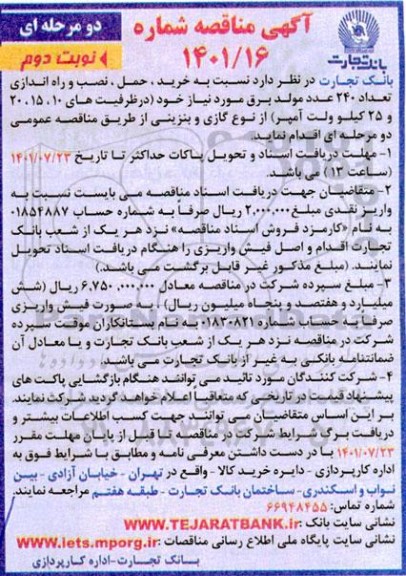 آگهی مناقصه شماره
۱۴۰۱/۱۶
دو مرحله ای
نوبت دوم
بانک تجارت
بانک تجارت در نظر دارد نسبت به خرید ، حمل ، نصب و راه اندازی
تعداد ۲۴۰ عدد مولد برق مورد نیاز خود (درظرفیت های ۱۰، ۱۵، ۲۰
و ۲۵ کیلو ولت آمپر) از نوع گازی و بنزینی از طریق مناقصه عمومی
دو مرحله ای اقدام نماید.
۱- مهلت دریافت اسناد و تحویل پاکات حداکثر تا تاریخ ۱۴۰۱/۰۷/۲۳
(ساعت ۱۳) می باشد.
۲- متقاضیان جهت دریافت اسناد مناقصه می بایست نسبت به
واریز نقدی مبلغ ۲,۰۰۰,۰۰۰ ریال صرفاً به شماره حساب ۰۱۸۵۴۸۸۷
به نام «کارمزد فروش اسناد مناقصه» نزد هر یک از شعب بانک
تجارت اقدام و اصل فیش واریزی را هنگام دریافت اسناد تحویل
نمایند. (مبلغ مذکور غیر قابل برگشت می باشد.)
۳- مبلغ سپرده شرکت در مناقصه معادل ۶,۷۵۰,۰۰۰,۰۰۰ ریال (شش
میلیارد و هفتصد و پنجاه میلیون ریال) ، به صورت فیش واریزی
صرفا به حساب شماره ۰۱۸۳۰۸۲۱ به نام بستانکاران موقت سپرده
شرکت در مناقصه نزد هر یک از شعب بانک تجارت و یا معادل آن
ضمانتنامه بانکی به غیر از بانک تجارت می باشد.
۴- شرکت کنندگان مورد تائید می توانند هنگام بازگشایی پاکت های
پیشنهاد قیمت در تاریخی که متعاقبا اعلام خواهد گردید شرکت نمایند.
بر این اساس متقاضیان می توانند جهت کسب اطلاعات بیشتر و
دریافت برگ شرایط شرکت در مناقصه تا قبل از پایان مهلت مقرر
۱۴۰۱/۰۷/۲۳ با در دست داشتن معرفی نامه و مطابق با شرایط فوق به
اداره کارپردازی - دایره خرید کالا - واقع در تهران - خیابان آزادی - بین
نواب و اسکندری- ساختمان بانک تجارت - طبقه هفتم مراجعه نمایند.
شماره تماس: ۶۶۹۴۸۴۵۵
نشانی سایت بانک : WWW.TEJARATBANK.ir
نشانی سایت پایگاه ملی اطلاع رسانی مناقصات : www.iets.mporg.ir
بانک تجارت-اداره کارپردازی